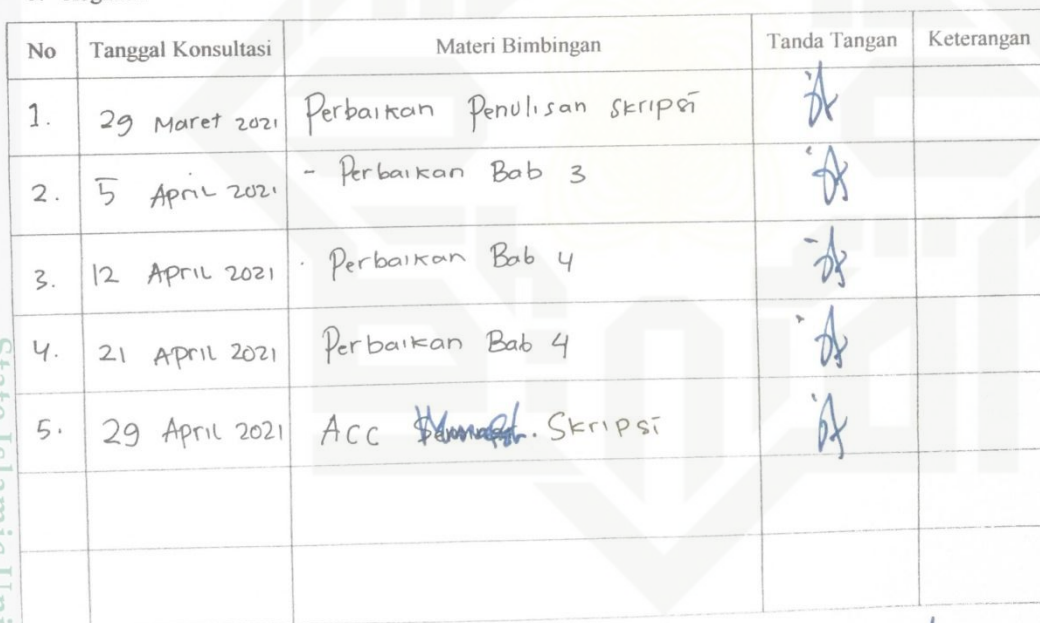 No Tanggal Konsultasi Materi Bimbingan Tanda Tangan Keterangan
1. 29 Maret 2021 Perbaikan Penulisan skripsi
2. 5 April 2021 - Perbaikan Bab 3
3. 12 April 2021 Perbaikan Bab 4
4. 21 April 2021 Perbaikan Bab 4
5. 29 April 2021 Acc Skripsi
State Islamic Uni